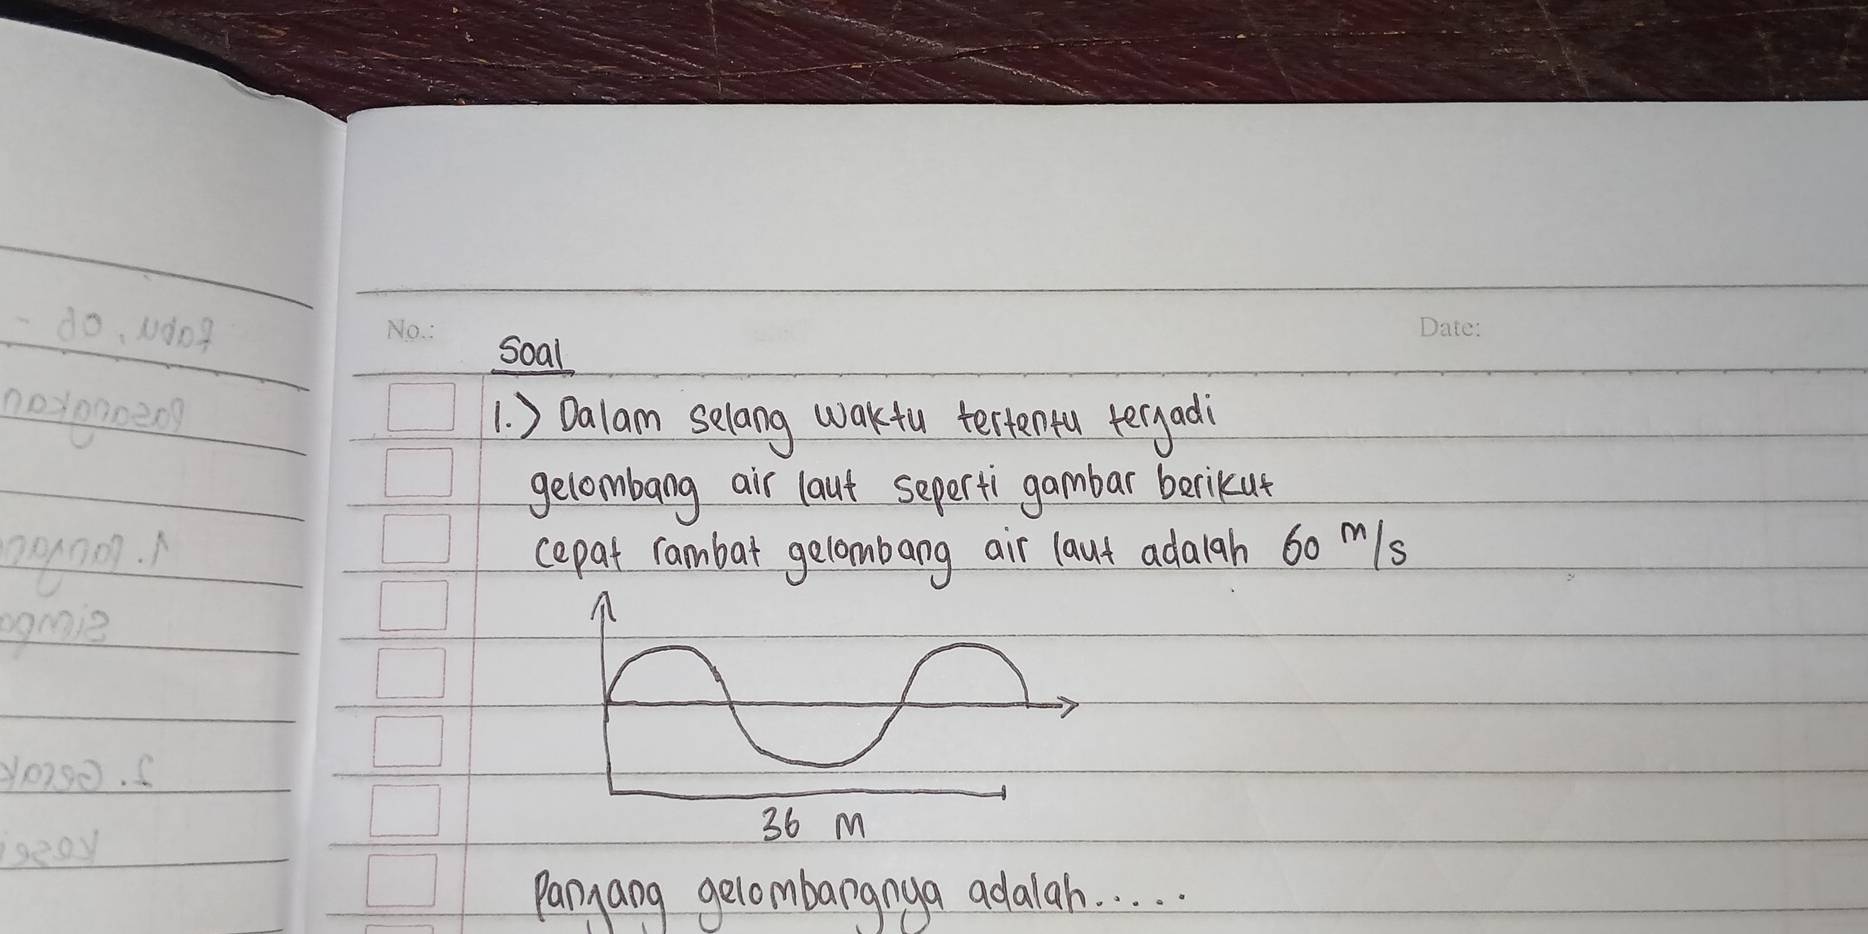 No.:
Date:
Soal
1.) Dalam selang waktu tertentu terjadi
gelombang air laut seperti gambar berikut
cepat rambat gelombang air laut adalah 60 m/s
36 m
Panjang gelombangnya adalah.....